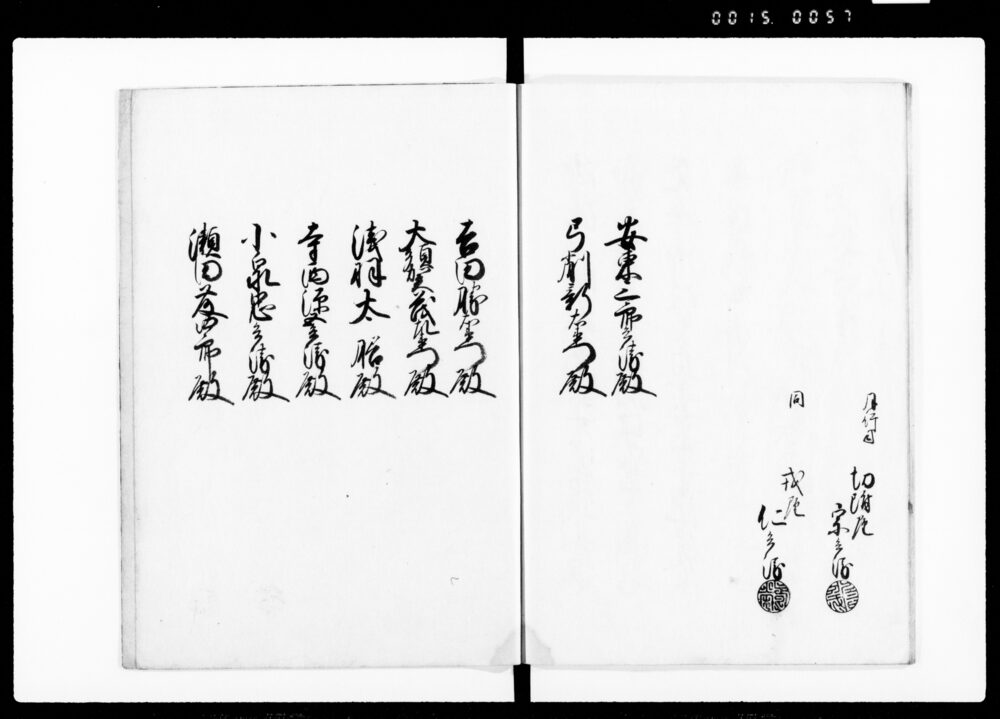 0015. 0057
月行司
切附屋
宗兵衛
同
戎屋
仁兵衛
安東二郎兵衛殿
弓削新右衛門殿
吉田勝右衛門殿
大須賀茂左衛門殿
浅羽太膳殿
寺内源兵衛殿
小泉忠兵衛殿
瀬田藤四郎殿